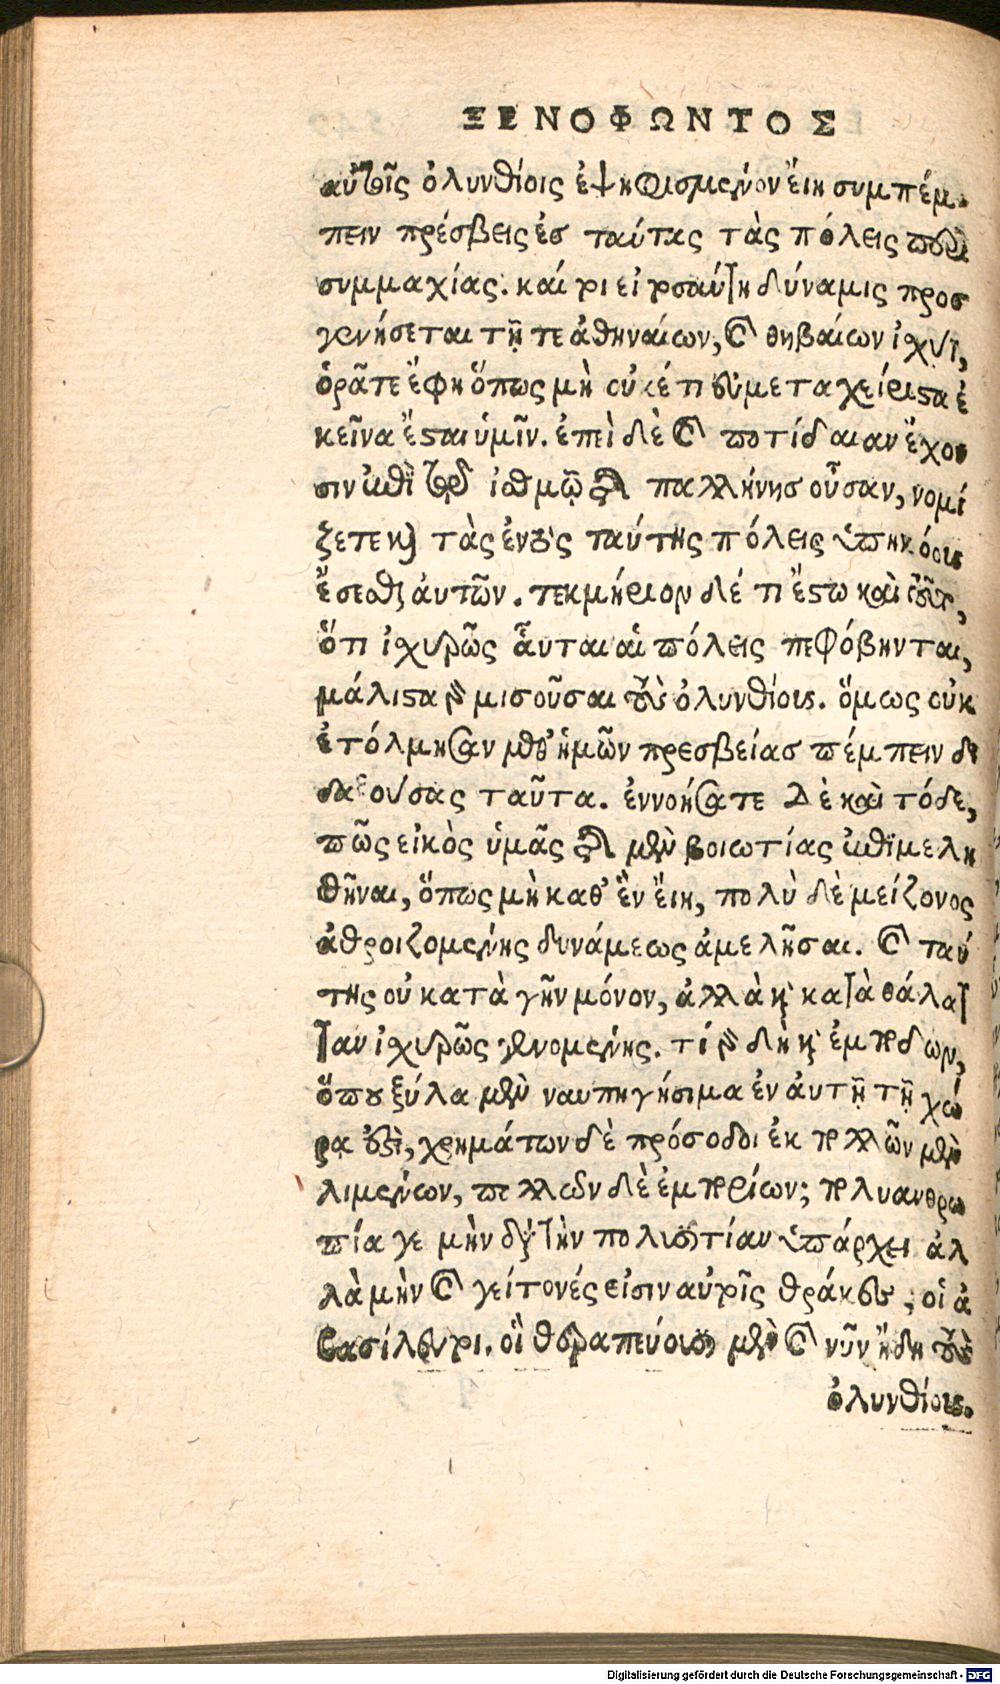 ΞΕΝΟΦΩΝΤΟΣ
αὐτοῖς ὀλυνθίοις ἐψηφισμένον ἔιη συμπέμ-
πειν πρέσβεις ἐσ ταύτας τὰς πόλεις περὶ
συμμαχίας. καί τοι εἰ τοσαύτη δύναμις προσ
γενήσεται τῇ τε ἀθηναίων, καὶ θηβαίων ἰσχύϊ,
ὁρᾶτε ἔφη ὅπως μὴ οὐκέτι εὐμεταχείριστα ἐ
κεῖνα ἔσται ὑμῖν. ἐπεὶ δὲ καὶ ποτίδαιαν ἔχου
σιν ἐπὶ τῷ ἰσθμῷ τῆς παλλήνησ οὖσαν, νομί
ζετε καὶ τὰς ἐντὸς ταύτης πόλεις ὑπηκόους
ἔσεσθαι ἀυτῶν. τεκμήριον δέ τι ἔστω καὶ τοῦτο,
ὅτι ἰσχυρῶς ἇυται αἱ πόλεις πεφόβηνται,
μάλιστα γὰρ μισοῦσαι τοὺς ὀλυνθίους. ὅμως οὐκ
ἐτόλμησαν μεθ' ἡμῶν πρεσβείασ πέμπειν δι
δαξούσας ταῦτα. ἐννοήσατε δὲ καὶ τόδε,
πῶς εἰκὸς ὑμᾶς τῆς μὲν βοιωτίας ἐπιμελη
θῆναι, ὅπως μὴ καθ' ἓν ἔιη, πολὺ δὲ μείζονος
ἀθροιζομένης δυνάμεως ἀμελῆσαι. καὶ ταύ
της οὐ κατὰ γῆν μόνον, ἀλλὰ καὶ κατὰ θάλατ
ταν ἰσχυρῶς γενομένης. τί γὰρ δὴ καὶ ἐμποδων,
ὅπου ξύλα μὲν ναυπηγήσιμα ἐν ἀυτῇ τῇ χώ
ρᾳ ἐστὶ, χρημάτων δὲ πρόσοδοι ἐκ πολλῶν μὲν
λιμένων, πολλῶν δὲ ἐμπορίων; πολυανθρω
πία γε μὴν διὰ τὴν πολυσιτίαν ὑπάρχει ἀλ
λὰ μὴν καὶ γείτονές εἰσιν αὐτοῖς θρᾷκες, οἱ ἀ
βασίλευτοι. οἳ θεραπεύουσι μὲν καὶ νῦν ἤδη τοὺς
ὀλυνθίους.
Digitalisierung gefördert durch die Deutsche Forschungsgemeinschaft - DFG